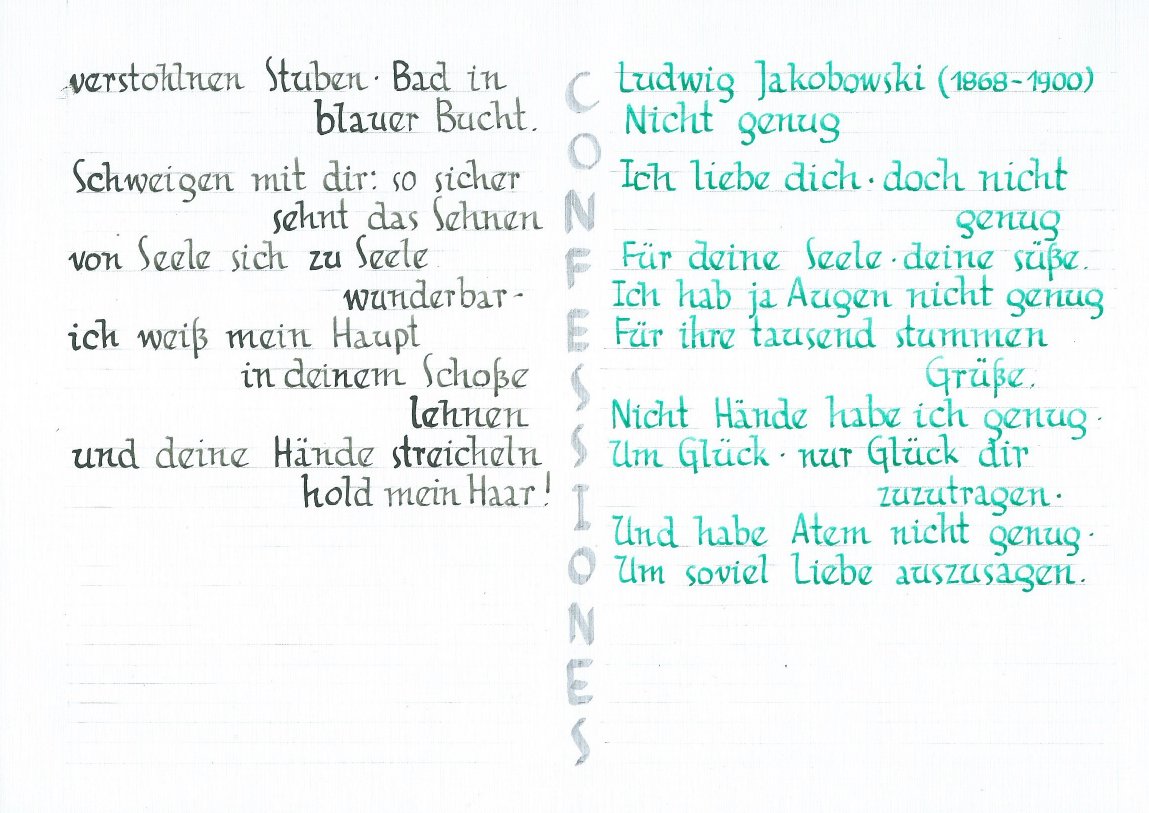 verstohlnen Stuben · Bad in
blauer Bucht.
Schweigen mit dir: so sicher
sehnt das Sehnen
von Seele sich zu Seele
wunderbar -
ich weiß mein Haupt
in deinem Schoße
lehnen
und deine Hände streicheln
hold mein Haar!
CONFESSIONES
Ludwig Jakobowski (1868-1900)
Nicht genug
Ich liebe dich · doch nicht
genug
Für deine Seele · deine süße.
Ich hab ja Augen nicht genug
Für ihre tausend stummen
Grüße.
Nicht Hände habe ich genug ·
Um Glück · nur Glück dir
zuzutragen ·
Und habe Atem nicht genug ·
Um soviel Liebe auszusagen.